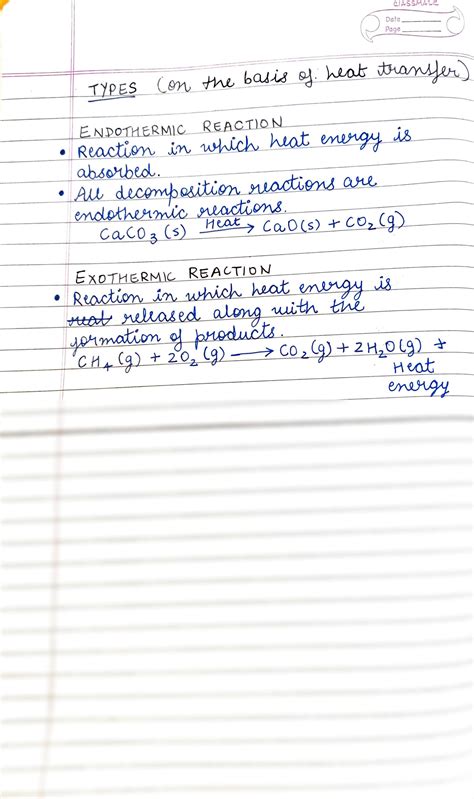 CLASSMATE
Date
Page
TYPES (on the basis of heat transfer)
ENDOTHERMIC REACTION
• Reaction in which heat energy is
absorbed.
• All decomposition reactions are
endothermic reactions.
CaCO₃(s) Heat→ CaO(s) + CO₂(g)
EXOTHERMIC REACTION
• Reaction in which heat energy is
released along with the
formation of products.
CH₄(g) + 2O₂(g) ⟶ CO₂(g) + 2H₂O(g) +
Heat
energy